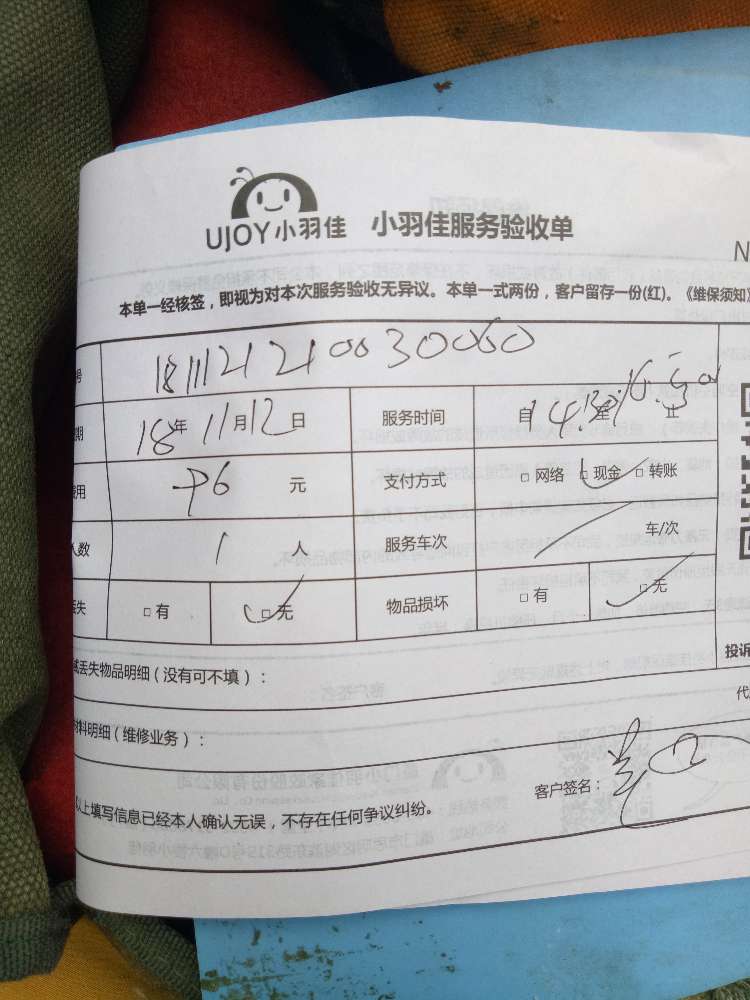 UJOY小羽佳 小羽佳服务验收单
N
本单一经核签，即视为对本次服务验收无异议。本单一式两份，客户留存一份(红)。《维保须知》
号 1811121210030060
期 18年11月12日 服务时间 自14:30至16:30止
费用 96 元 支付方式 □网络 □现金 □转账
人数 1 人 服务车次 车/次
丢失 □有 □无 物品损坏 □有 □无
或丢失物品明细（没有可不填）：
投诉
代
材料明细（维修业务）：
客户签名：
以上填写信息已经本人确认无误，不存在任何争议纠纷。